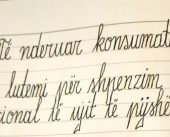 Të nderuar konsumat
lutemi për shpenzim
cional të ujit të pijshë